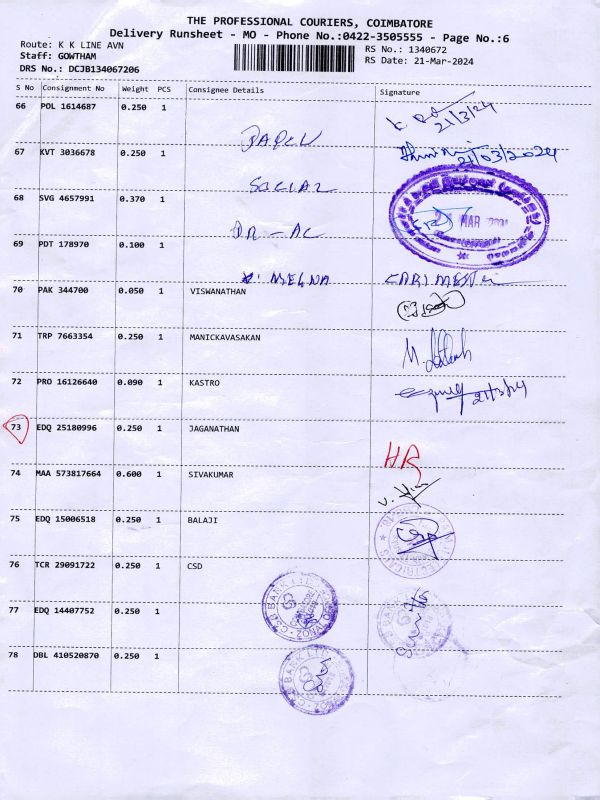 THE PROFESSIONAL COURIERS, COIMBATORE
Delivery Runsheet - MO - Phone No.:0422-3505555 - Page No.:6
Route: K K LINE AVN
RS No.: 1340672
Staff: GOWTHAM
RS Date: 21-Mar-2024
DRS No.: DCJB134067206
S No Consignment No Weight PCS Consignee Details Signature
66 POL 1614687 0.250 1
21/3/24
67 KVT 3036678 0.250 1
21/03/2024
SOCIAL
68 SVG 4657991 0.370 1
MAR
69 PDT 178970 0.100 1
70 PAK 344700 0.050 1 VISWANATHAN
71 TRP 7663354 0.250 1 MANICKAVASAKAN
72 PRO 16126640 0.090 1 KASTRO
21/3/24
73 EDQ 25180996 0.250 1 JAGANATHAN
HR
74 MAA 573817664 0.600 1 SIVAKUMAR
75 EDQ 15006518 0.250 1 BALAJI
76 TCR 29091722 0.250 1 CSD
CSB BANK LTD
77 EDQ 14407752 0.250 1
78 DBL 410520870 0.250 1
CSB BANK LTD